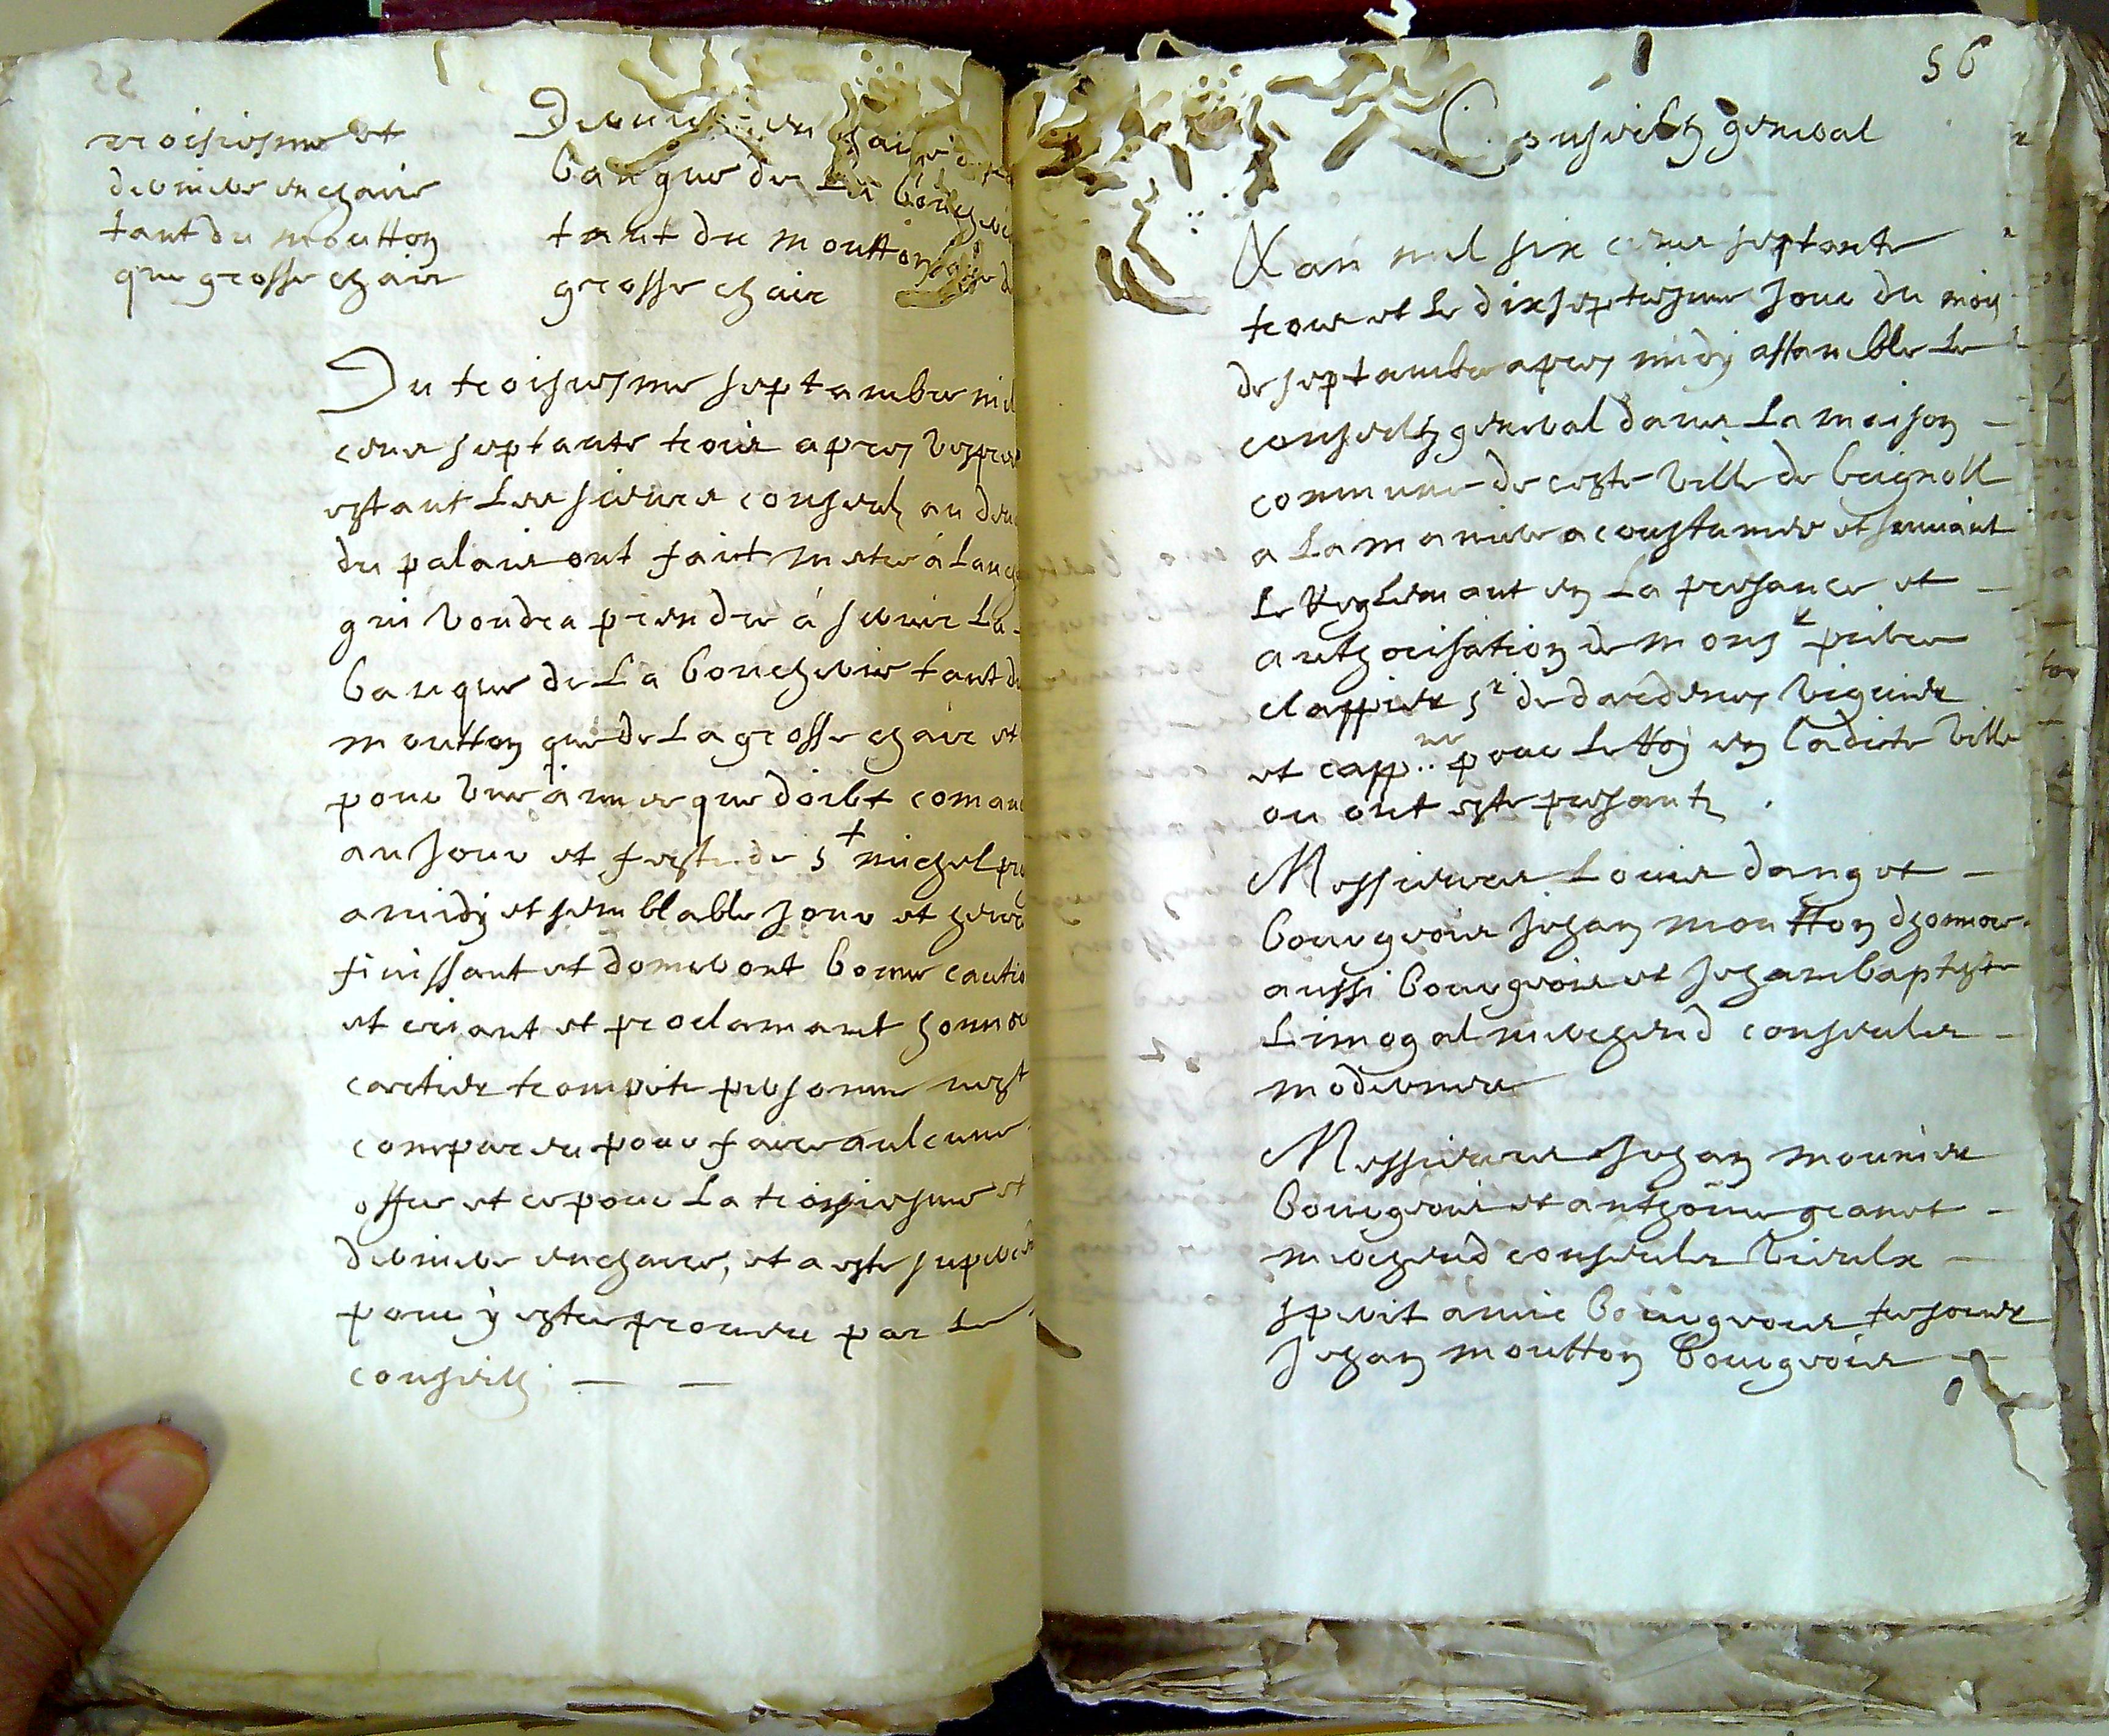 troisiesme et
derniere enchaire
tant du moutton
que grosse chair
Derniere enchaire de la
banque de la boucherie
tant du moutton que de
grosse chair
Du troisiesme septambre mil
cens septante trois apres vespres
estant les sieurs conseulz au devant
du palais ont faict metre a lanch
qui voudra prendre a servir la
banque de la boucherie tant du
moutton que de la grosse chair et
pour une année que doibt comanc
au jour et feste de St michel pro
a midy et semblable jour et heure
finissant et donneront bonne cautio
et criant et proclamant honnor
cartier trompete personne nest
comparue pour faire aulcune
offre et ce pour la troisiesme et
derniere enchaire, et a este supercedé
pour y estre proveu par le
conseilh
56
Conseilh general
L'an mil six cens septante
trois et le dixseptiesme jour du mois
de septambre apres midy assamblé le
conseilh general dans la maison
commune de ceste ville de brignolle
a la maniere acoustumée et suivant
le reglemant en la presance et
authorisation de monsr
clappier sr de dardenes viguier
et cappne pour le Roy en ladicte ville
ou ont este presantz
Messieurs Louis
bourgeois jehan moutton dhonnor
aussi bourgeois et jehan baptiste
Limogal merchend conseulx
modernes
Messieurs jehan mounier
bourgeois et anthoine granet
merchend conseulx vieulx
sperit amic bourgeois tresorier
jehan moutton bourgeois